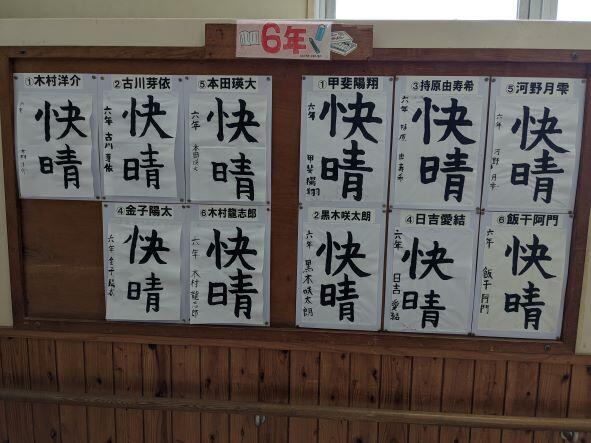 6年
①木村洋介
快晴
②古川芽依
快晴
六年 古川芽依
⑤本田瑛大
快晴
六年 本田瑛大
①甲斐陽翔
快晴
六年 甲斐陽翔
③持原由寿希
快晴
六年 持原由寿希
⑤河野月雫
快晴
六年 河野月雫
④金子陽太
快晴
六年 金子陽太
⑥木村龍志郎
快晴
六年 木村龍志郎
②黒木咲太朗
快晴
六年 黒木咲太朗
④日吉愛結
快晴
六年 日吉愛結
⑥飯干阿門
快晴
六年 飯干阿門